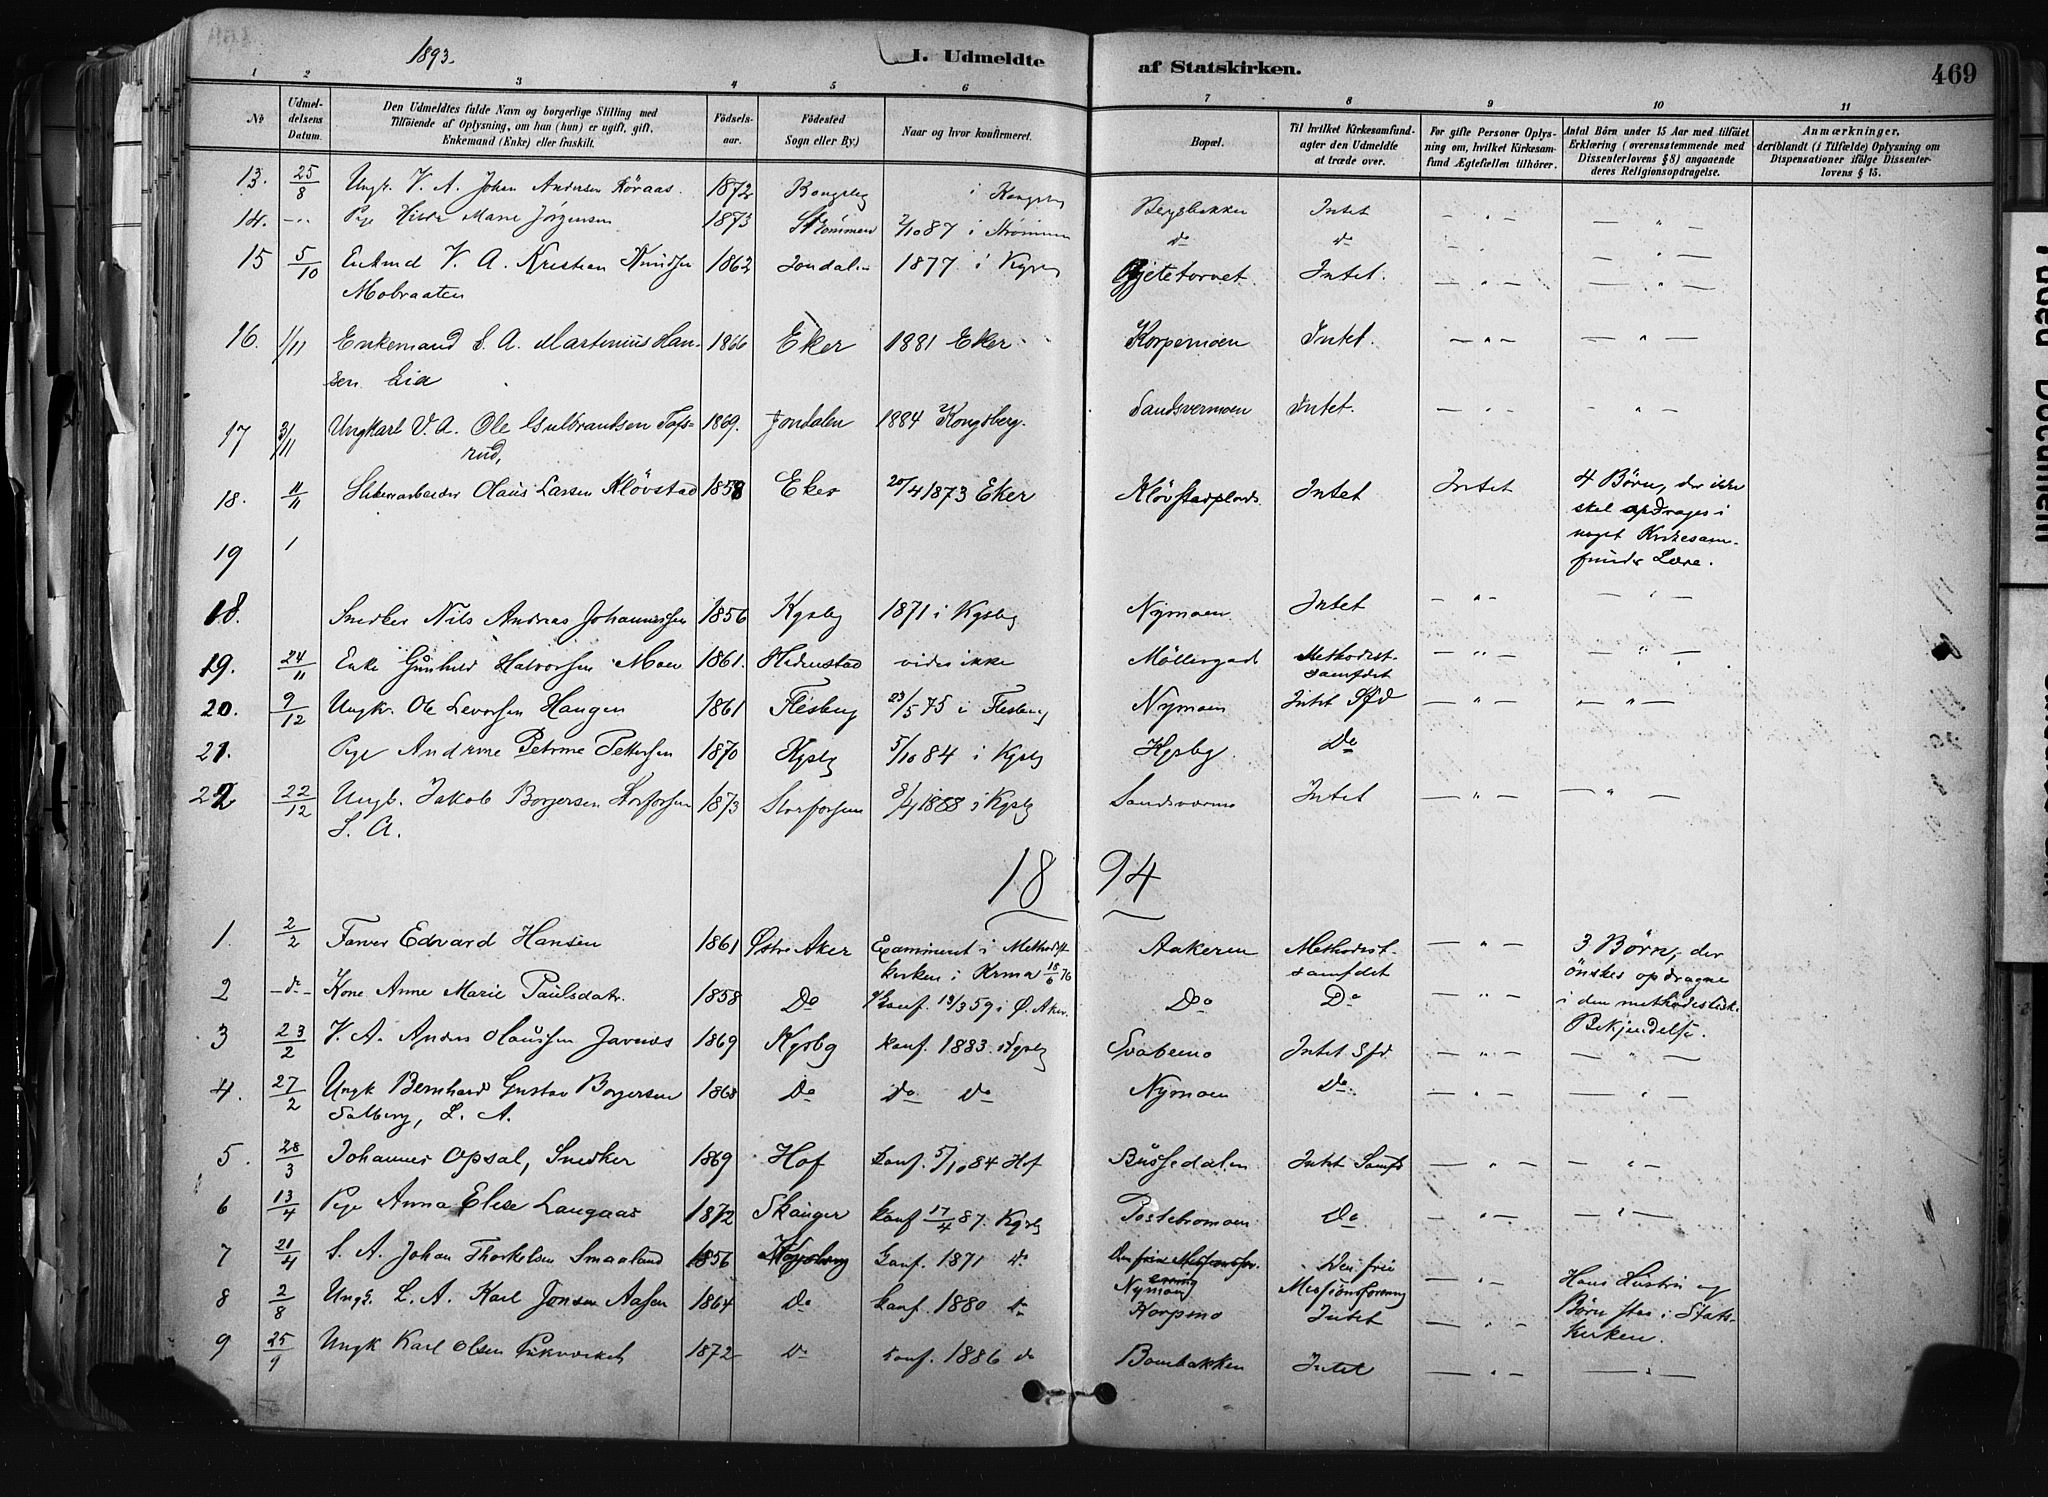 1893.
I. Udmeldte af Statskirken. 469
1 2 3 4 5 6 7 8 9 10 11
No
Udmeldelsens Datum.
Den Udmeldtes fulde Navn og borgerlige Stilling med Tilføiende af Oplysning, om han (hun) er ugift, gift, Enkemand (Enke) eller fraskilt.
Fødselsaar.
Fødested Sogn eller By.)
Naar og hvor konfirmeret.
Bopæl.
Til hvilket Kirkesamfund agter den Udmeldte at træde over.
For gifte Personer Oplysning om, hvilket Kirkesamfund Ægtefællen tilhører.
Antal Børn under 15 Aar med tilføiet Erklæring (overensstemmende med Dissenterlovens § 8) angaaende deres Religionsopdragelse.
Anmærkninger, deriblandt (i Tilfælde) Oplysning om Dispensationer ifølge Dissenterlovens § 15.
13. 25/8 Ungk. V. A. Johan Andersen Røraas. 1872 Kongsbg i Kongsbg Bergsbakken Intet — " —
14. -"- Pige Marie Jørgensen 1873 Strømmen 2/10 87 i Strømmen do do — " —
15 5/10 Enkmd V. A. Kristian Knudsen 1862 Jondalen 1877 i Kgsbg Gjetetorvet. Intet. — " — — " —
Mobraaten
16. 1/11 Enkemand S. A. Martinius Han- 1866 Eker 1881 Eker Korpemoen Intet. — " — — " —
sen Lia
17 3/11 Ungkarl V. A. Ole Gulbrandsen Tofs- 1869. Jondalen 1884 Kongsberg. Sandsvermoen Intet. — " — — " —
rud,
18. 11/11 Olaus Larsen Kløvstad 1858 Eker 20/4 1873 Eker Kløvstadplads Intet Intet 4 Børn, der ikke
skal opdrages i
19 1 noget Kirkesam-
funds Lære.
18. Snedker Nils Andreas Johannessen 1856 Kgsbg 1871 i Kgsbg Nymoen Intet — " — — " —
19. 24/11 Enke Gunhild Halvorsen Moen 1861. Hedenstad vides ikke Möllergad Methodist- — " — — " —
samfdet
20. 9/12 Ungk. Ole Levorsen Haugen 1861 Flesberg 23/5 75 i Flesberg Nymoen Intet Sfd — " — — " —
21. Pige Andrine Petrine Pettersen 1870 Kgsbg 5/10 84 i Kgsbg Kgsbg. Do
22 22/12 Ungk. Jakob Borgersen Storforsen 1873 Storforsen 8/4 1888 i Kgsbg Sandsværmo Intet — " — — " —
S. A.
1894
1. 2/2 Farver Edvard Hansen 1861 Østre Aker Examineret i Methodist- Aakeren Methodist- — " — 3 Børn, der
kirken i Krnia 18/6 76 samfdet ønskes opdragne
2 -do- Kone Anne Marie Paulsdatr. 1858 Do Konf. 13/3 59 i Ø. Aker. Do Do — " — i den methodistisk.
Bekjendelse.
3 23/2 V. A. Anders Olaussen 1869 Kgsbg konf. 1883. i Kgsbg Svabemo Intet Sfd. — " — — " —
4. 27/2 Ungk Bernhard Gustav Borgersen 1868 Do Do Do Nymoen Do. — " — — " —
Solberg, L. A.
5. 28/3 Johannes Opsal, Snedker 1869 Hof Konf. 5/10 84 Hof Bussedalen Intet Samfd — " — — " —
6 13/4 Pige Anna Elise Langaas 1872 Skauger Konf 17/4 87. Kgsbg Do — " — — " —
7 21/4 S. A. Johan Thorkelsen Smaaland 1856 Kongsberg Konf. 1871 do Den frie Missionsfor- Den frie
ening Nymoen Missionsforening — " — Hans Hustru og
8 2/8 Ungk. L. A. Karl Jonsen Aasen 1864 Do Konf. 1880 do Korpmo Intet — " — Børn staa i Stats-
Kirken.
9 25/9 Ungk Karl Olsen 1872 Do Konf. 1886 do Bombakken Intet — " — — " —